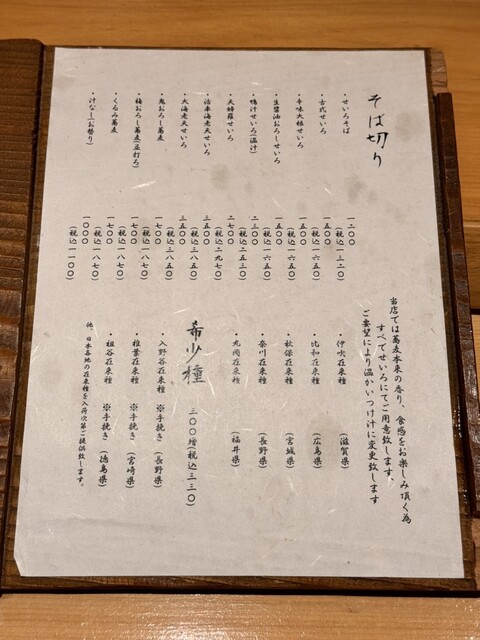 そば切り
・せいろそば 一二〇〇
(税込一三二〇)
・古式せいろ 一五〇〇
(税込一六五〇)
・辛味大根せいろ 一五〇〇
(税込一六五〇)
・生醤油おろしせいろ 一五〇〇
(税込一六五〇)
・鴨汁せいろ(温汁) 二三〇〇
(税込二五三〇)
・天婦羅せいろ 二七〇〇
(税込二九七〇)
・活車海老天せいろ 三五〇〇
(税込三八五〇)
・大海老天せいろ 三五〇〇
(税込三八五〇)
・鬼おろし蕎麦 一七〇〇
(税込一八七〇)
・梅おろし蕎麦(平打ち) 一七〇〇
(税込一八七〇)
・くるみ蕎麦 一七〇〇
(税込一八七〇)
・汁なし(お替り) 一〇〇〇
(税込一一〇〇)
当店では蕎麦本来の香り、食感をお楽しみ頂く為
すべてせいろにてご用意致します、
ご要望により温かいつけ汁に変更致します
・伊吹在来種 (滋賀県)
・比和在来種 (広島県)
・秋保在来種 (宮城県)
・奈川在来種 (長野県)
・丸岡在来種 (福井県)
希少種 三〇〇増(税込三三〇)
・入野谷在来種 ※手挽き (長野県)
・椎葉在来種 ※手挽き (宮崎県)
・祖谷在来種 ※手挽き (徳島県)
他、日本各地の在来種を入荷次第ご提供致します。